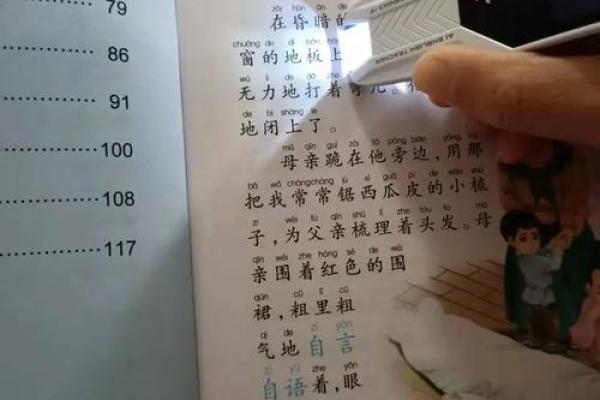 79
86
91
100
108
117
AI ENGLISH TEACHER
zài hūn àn de
在昏暗的
chuāng de dì bǎn
窗的地板上
无力地打着
de bì shàng le
地闭上了。
mǔ qīn guì zài tā páng biān yòng nà
母亲跪在他旁边，用那
bǎ wǒ chángcháng jù xī guā pí de xiǎo shū
把我常常锯西瓜皮的小梳
zi wèi fù qīn shū lǐ zhe tóu fa mǔ
子，为父亲梳理着头发。母
qīn wéi zhe hóng sè de wéi
亲围着红色的围
qún cū lǐ cū
裙，粗里粗
qì de zì yán
气地自言
zì yǔ zhe yǎn
自语着，眼